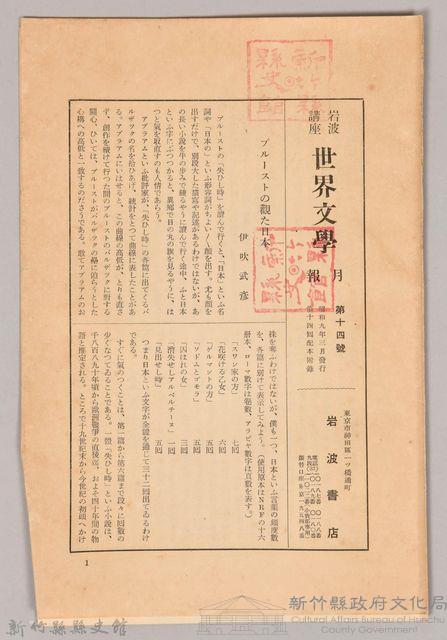 岩波
講座
世界文學
月報
第十四號
昭和九年三月發行
第十四回配本附錄
東京市神田區一ツ橋通町
岩波書店
プルーストの觀た日本
伊吹武彦
プルーストの「失ひし時」を讀んで行くと、「日本」といふ名
詞や「日本の」といふ形容詞がちょい〳〵顏を出す。尤も顏を
出すだけで、別段大した描寫や記述があるわけではないが、あ
の長い小說を牛の歩みで續るやうに讀んで行く途中、ふと日本
といふ字にぶつつかると、異郷で日の丸の旗を見るやうに、は
つと氣を取直すのも人情であらう。
アブラアムといふ批評家が、「失ひし時」の各篇に出てくるバ
ルザックの名を拾ひあげ、統計をとつて曲線に表したことがあ
る。アブラアムにいはせると、この曲線の高低が、とりも直さ
ず、創作を續けて行つた間のプルーストのバルザックに對する
關心、ひいては、プルーストがバルザックの壘に迫らうとした
心構への高低と一致するのださうである。敢てアブラアムのお
株を奪ふわけではないが、僕も一つ、日本といふ言葉の頻度數
を、各篇に別けて表示してみよう。(使用原本はNRFの十六
册本、ローマ數字は卷數、アラビヤ數字は頁數を表す。)
「スワン家の方」 七回
「花咲ける乙女」 六回
「ゲルマントの方」 五回
「ソドムとゴモラ」 五回
「囚はれの女」 三回
「消失せしアルベルチーヌ」 一回
「見出せし時」 五回
つまり日本といふ文字が全體を通じて三十二回出てゐるわけ
である。
すぐに氣のつくことは、第一篇から第六篇まで段々に回數の
少くなつてゐることである。一體「失ひし時」といふ小說は、
千八百九十年頃から歐洲戰爭の直後迄、およそ四十年間の物
語と推定される。ところで十九世紀末から今世紀の初頭へかけ
1
新竹縣縣史館
新竹縣政府文化局
Cultural Affairs Bureau of Hsinchu
County Government